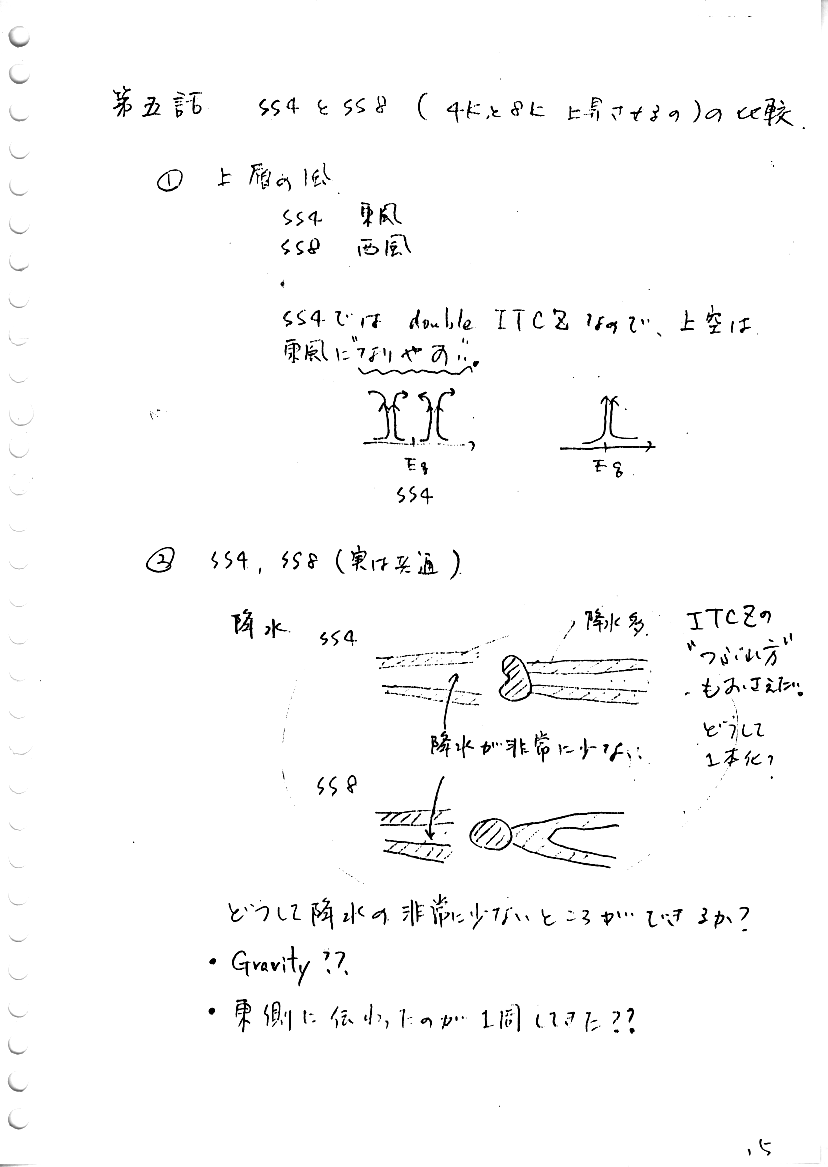 第五話 SS4とSS8 (4Kと8K上昇させるの)の比較.
① 上層の風
SS4 東風
SS8 西風
SS4では double ITCZ なので、上空は
東風に"なりやすい".
Eq
SS4
Eq.
② SS4, SS8 (実は共通)
降水
SS4
降水多
ITCZの
"つぶれ方"
もおさえたい。
どうして
1本化?
降水が非常に少ない
SS8
どうして降水の非常に少ないところができるか?
• Gravity??
• 東側に伝わったのが1周してきた??
15